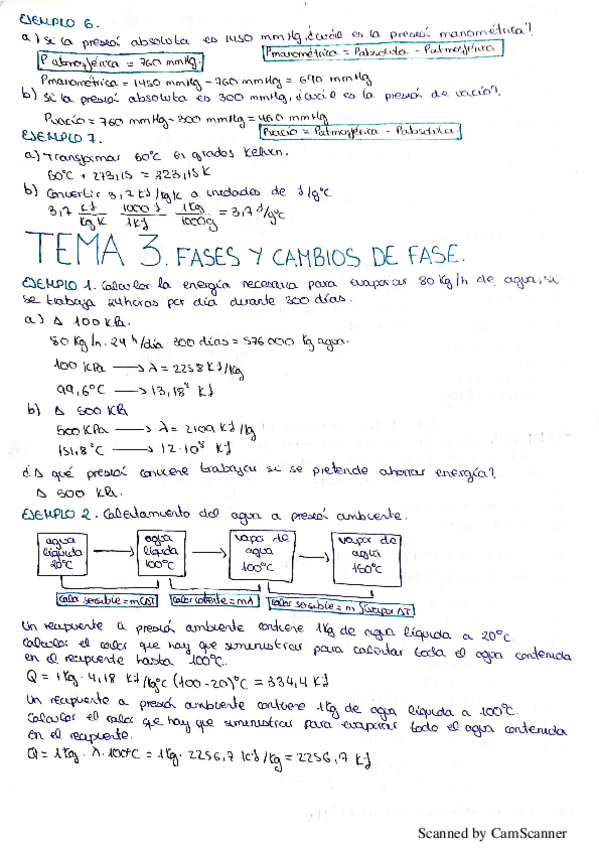 EJEMPLO 6.
a) si la presión absoluta es 1450 mmHg, ¿cuál es la presión manométrica?
Patmosférica = 760 mmHg.
Pmanométrica = Pabsoluta - Patmosférica
Pmanométrica = 1450 mmHg - 760 mmHg = 690 mmHg
b) si la presión absoluta es 300 mmHg, ¿cuál es la presión de vacío?
Pvacío = 760 mmHg - 300 mmHg = 460 mmHg
Pvacío = Patmosférica - Pabsoluta
EJEMPLO 7.
a) Transformar 50°C en grados Kelvin.
50°C + 273,15 = 323,15 K
b) Convertir 3,7 kJ/kgK a unidades de J/g°C
3,7 kJ/kg K · 1000 J/1 kJ · 1 Kg/1000 g = 3,7 J/g°C
TEMA 3. FASES Y CAMBIOS DE FASE.
EJEMPLO 1. Calcular la energía necesaria para evaporar 80 Kg/h de agua, si
se trabaja 24 horas por día durante 300 días.
a) A 100 KPa.
80 Kg/h · 24 h/día · 300 días = 576000 Kg agua.
100 KPa → λ = 2258 KJ/Kg
99,6°C → 13,18⁸ KJ
b) A 500 KPa
500 KPa → λ = 2109 KJ/Kg
151,8°C → 12·10⁸ KJ
¿A qué presión conviene trabajar si se pretende ahorrar energía?
A 500 KPa.
EJEMPLO 2. Calentamiento del agua a presión ambiente.
agua líquida 20°C
agua líquida 100°C
vapor de agua 100°C
vapor de agua 150°C
calor sensible = mCΔT
calor latente = mλ
calor sensible = m vapor ΔT
Un recipiente a presión ambiente contiene 1Kg de agua líquida a 20°C.
Calcular el calor que hay que suministrar para calentar toda el agua contenida
en el recipiente hasta 100°C.
Q = 1Kg · 4,18 KJ/Kg°C (100-20)°C = 334,4 KJ
Un recipiente a presión ambiente contiene 1Kg de agua líquida a 100°C.
Calcular el calor que hay que suministrar para evaporar todo el agua contenida
en el recipiente.
Q = 1Kg · λ 100°C = 1Kg · 2256,7 KJ/Kg = 2256,7 KJ
Scanned by CamScanner